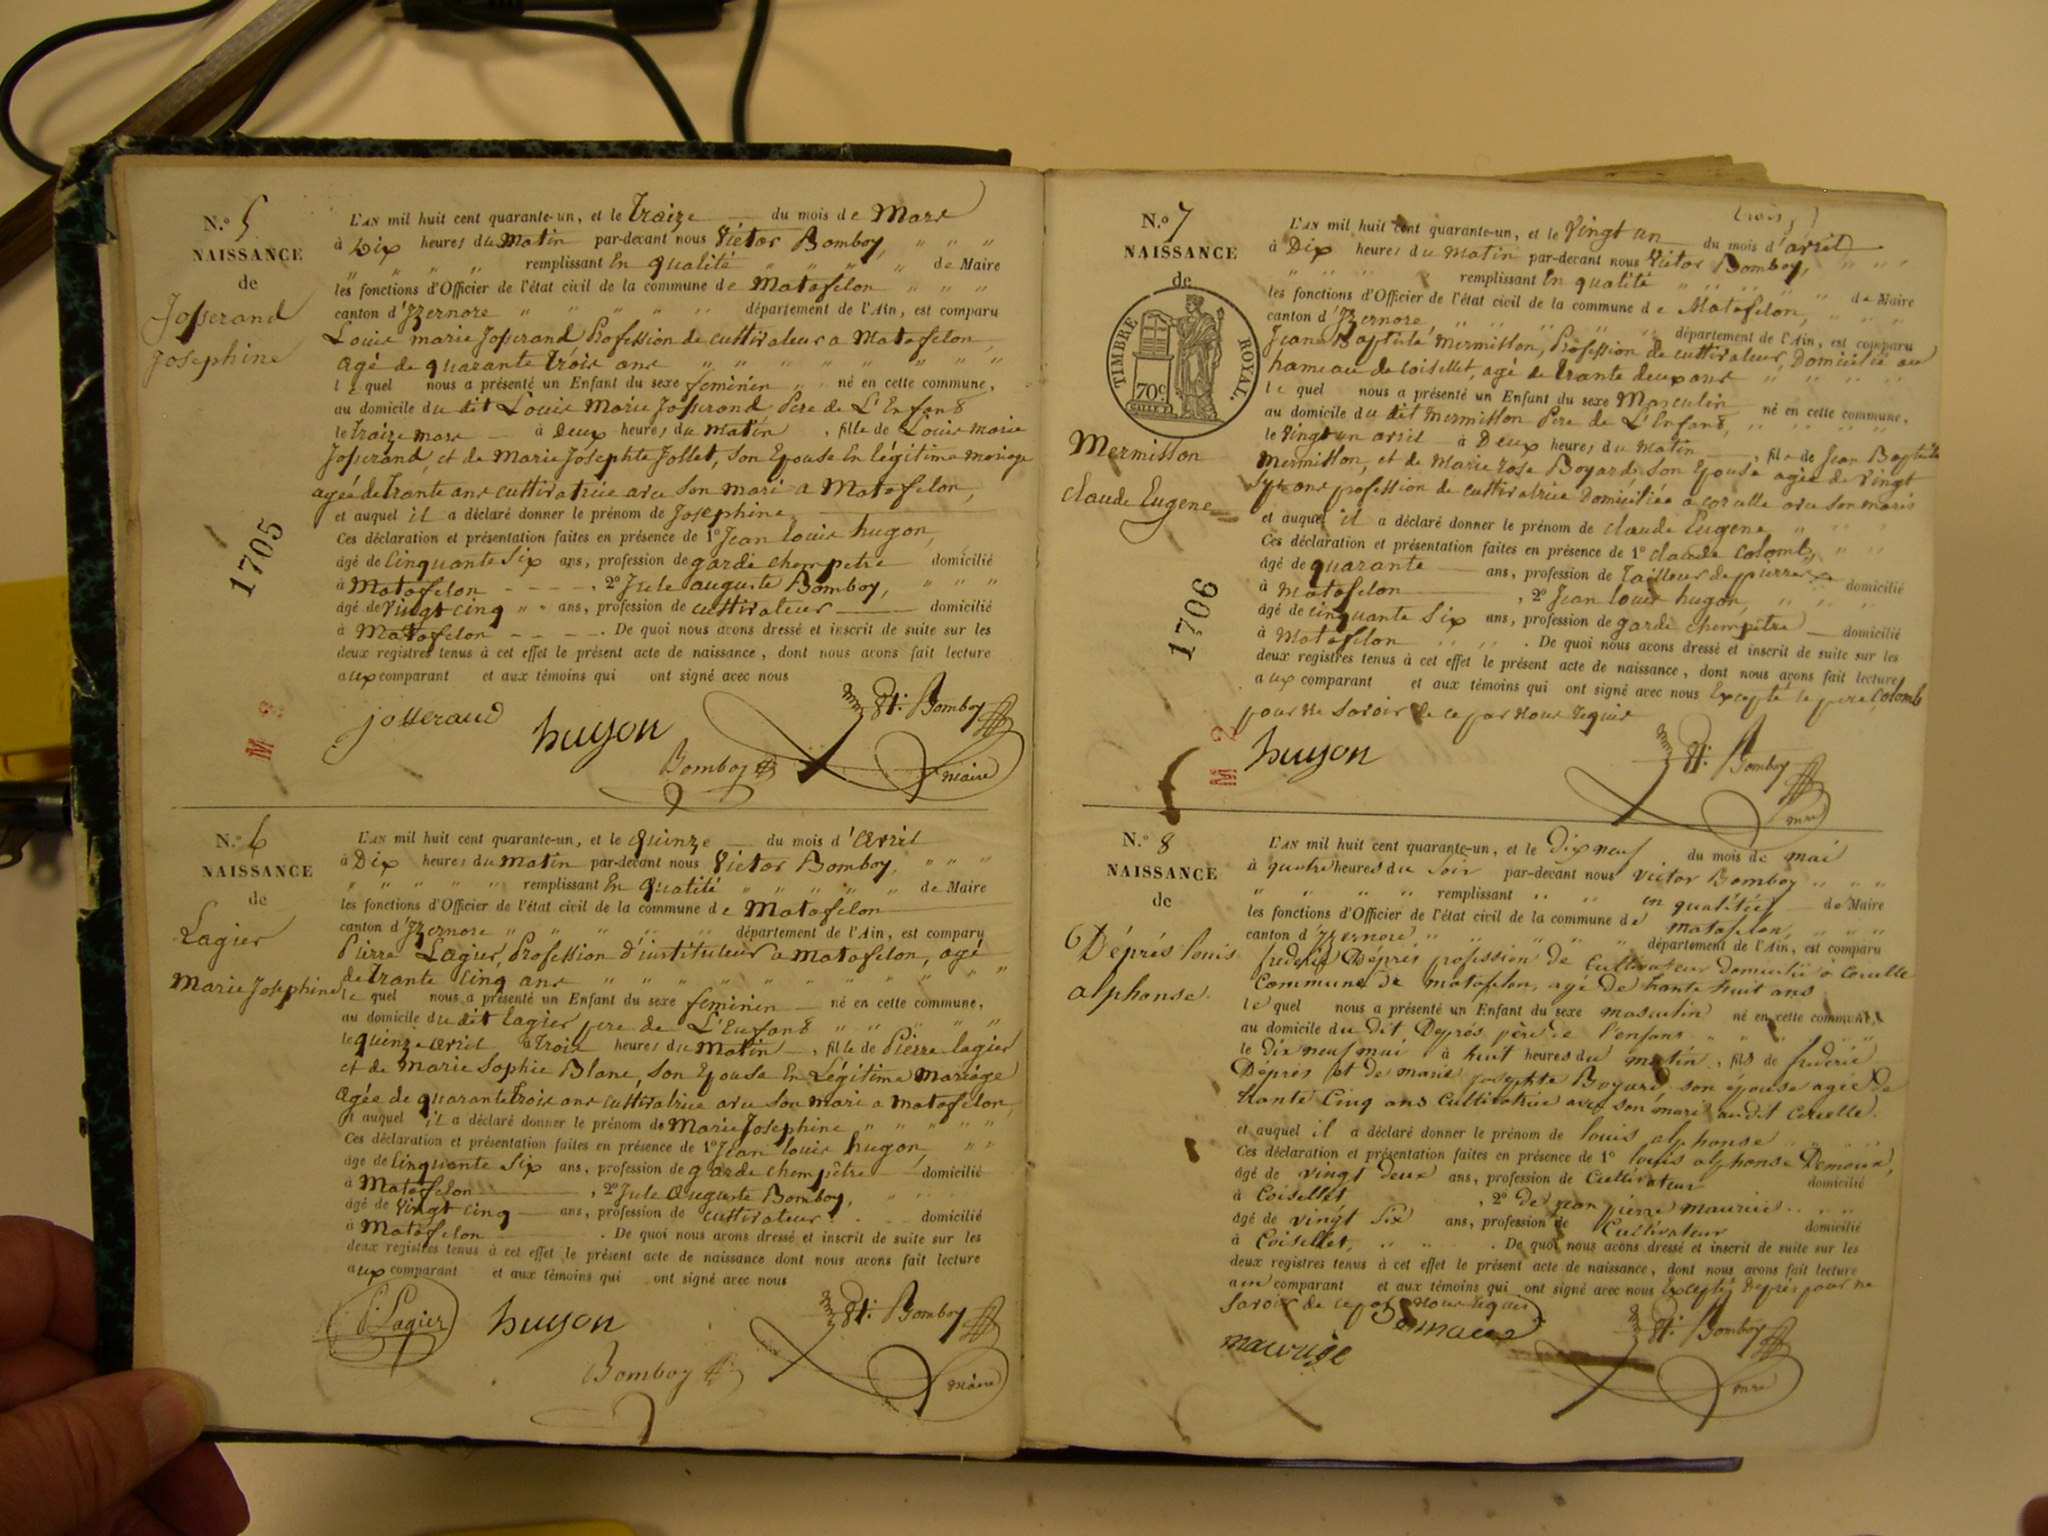 N.º 5
NAISSANCE
de
Josserand
Josephine
1705
M 2
L'AN mil huit cent quarante-un, et le traize du mois de Mars
à Dix heures du Matin par-devant nous Victor Bomboy, " " "
remplissant En qualité " " " " de Maire
les fonctions d'Officier de l'état civil de la commune de Matafelon " " "
canton d'Izernore " " " " " département de l'Ain, est comparu
Louis marie Josserand Profession de cultivateur a Matafelon,
agé de quarante trois ans " " " " " " " " "
le quel nous a présenté un Enfant du sexe feminin " " né en cette commune,
au domicile du dit Louis Marie Josserand Pere de L'Enfant
le traize mars à Deux heures du matin, fille de Louis marie
Josserand, et de Marie Josephte Jollet, son Epouse En légitime mariage
agée de trante ans cultivatrice avec son mari a Matafelon,
et auquel il a déclaré donner le prénom de Josephine
Ces déclaration et présentation faites en présence de 1º Jean louis hugon,
âgé de Cinquante Six ans, profession de garde champetre domicilié
à Matafelon - - - - , 2º Jule auguste Bomboy, " " "
âgé de vingt cinq " " ans, profession de cultivateur domicilié
à Matafelon - - - - . De quoi nous avons dressé et inscrit de suite sur les
deux registres tenus à cet effet le présent acte de naissance, dont nous avons fait lecture
aux comparant et aux témoins qui ont signé avec nous
josserand hugon Bomboy Bomboy maire
N.º 6
NAISSANCE
de
Lagier
Marie Josephine
L'AN mil huit cent quarante-un, et le quinze du mois d'avril
à Dix heures du matin par-devant nous Victor Bomboy, " " "
" " " " " remplissant En qualité " " " " " de Maire
les fonctions d'Officier de l'état civil de la commune de Matafelon
canton d'Izernore " " " " " département de l'Ain, est comparu
Pierre Lagier, Profession d'instituteur a matafelon, agé
de trante Cinq ans " " " " " " " " " " "
le quel nous a présenté un Enfant du sexe feminin né en cette commune,
au domicile du dit lagier pere de L'Enfant " " " " "
le quinze avril à trois heures du Matin, fille de Pierre lagier
et de Marie Sophie Blanc, son Epouse En Légitime Mariage
Agée de quarante trois ans cultivatrice avec son mari a matafelon,
et auquel il a déclaré donner le prénom de Marie Josephine " " " " "
Ces déclaration et présentation faites en présence de 1º Jean louis hugon, " "
âgé de Cinquante Six ans, profession de garde champêtre domicilié
à Matafelon , 2º Jule Auguste Bomboy,
âgé de vingt cinq ans, profession de cultivateur domicilié
à Matafelon . De quoi nous avons dressé et inscrit de suite sur les
deux registres tenus à cet effet le présent acte de naissance dont nous avons fait lecture
aux comparant et aux témoins qui ont signé avec nous
P. Lagier hugon Bomboy Bomboy maire
N.º 7
NAISSANCE
de
TIMBRE ROYAL.
70c
Mermillon
claude Eugene
1706
M 2
trois
L'AN mil huit cent quarante-un, et le Vingt un du mois d'avril
à Dix heures du matin par-devant nous Victor Bomboy, " " "
" " " " remplissant En qualité " " " " de Maire
les fonctions d'Officier de l'état civil de la commune de Matafelon, " " "
canton d'Izernore " " " " " département de l'Ain, est comparu
Jean Baptiste Mermillon, Profession de cultivateur, Domicilié au
hameau de Coisellet, agé de trante deux ans " " " " "
le quel nous a présenté un Enfant du sexe Masculin né en cette commune,
au domicile du dit Mermillon Pere de L'Enfant, " " " "
le vingt un avril à Deux heures du Matin , fils de Jean Baptiste
Mermillon, et de Marie rose Boyard Son Epouse agée de vingt
Sept ans profession de cultivatrice Domiciliée a avec son maris
et auquel il a déclaré donner le prénom de claude Eugene " " "
Ces déclaration et présentation faites en présence de 1º claude Colomb, " "
âgé de quarante ans, profession de tailleur de pierre domicilié
à Matafelon , 2º Jean louis hugon, " " " "
âgé de cinquante Six ans, profession de garde champêtre domicilié
à Matafelon " " " . De quoi nous avons dressé et inscrit de suite sur les
deux registres tenus à cet effet le présent acte de naissance, dont nous avons fait lecture
aux comparant et aux témoins qui ont signé avec nous Excepté le pere Colomb
pour ne savoir de ce par nous requis
hugon Bomboy mre
N.º 8
NAISSANCE
de
Déprés louis
alphonse.
L'AN mil huit cent quarante-un, et le Dix neuf du mois de mai
à quatre heures du soir par-devant nous victor Bomboy " " "
" " " " remplissant " " en qualité de Maire
les fonctions d'Officier de l'état civil de la commune de matafelon, " " "
canton d'Izernore " " " " " département de l'Ain, est comparu
frederic Déprés profession de cultivateur domicilié à Corcelle
Commune de matafelon, agé de trante huit ans
le quel nous a présenté un Enfant du sexe masculin né en cette commune,
au domicile du dit Déprés père de l'enfant " " " "
le dix neuf mai à huit heures du matin, fils de frederic
Déprés et de marie josephte Boyard son épouse agée de
trante Cinq ans Cultivatrice avec son mari au dit Corcelle.
et auquel il a déclaré donner le prénom de louis alphonse " " " "
Ces déclaration et présentation faites en présence de 1º louis alphonse
âgé de vingt deux ans, profession de Cultivateur domicilié
à Coisellet , 2º de jean pierre maurice " " "
âgé de vingt six ans, profession de Cultivateur domicilié
à Coisellet, " " . De quoi nous avons dressé et inscrit de suite sur les
deux registres tenus à cet effet le présent acte de naissance, dont nous avons fait lecture
aux comparant et aux témoins qui ont signé avec nous Excepté Déprés pour ne
savoir de ce par nous requis
maurice Bomboy mre